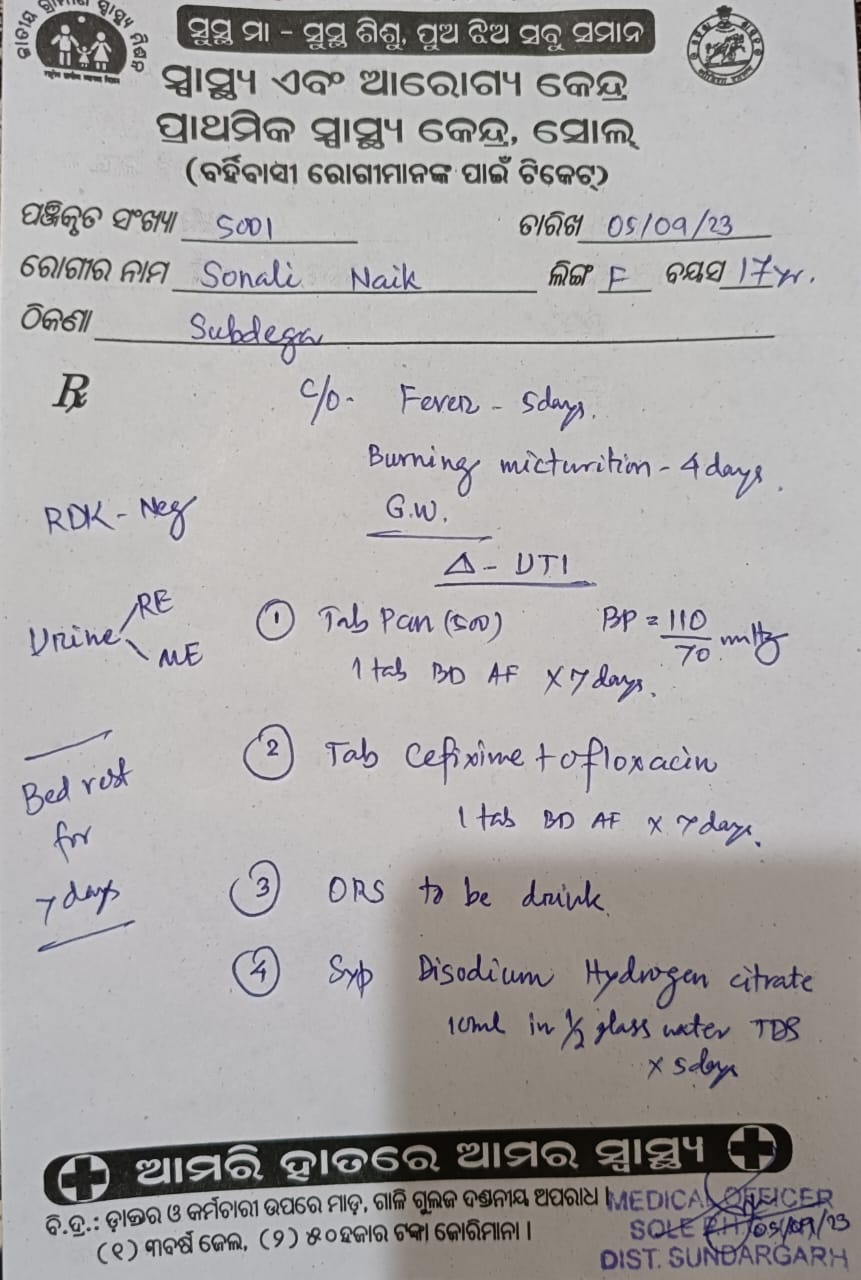 ଜାତୀୟ ଗ୍ରାମୀଣ ସ୍ୱାସ୍ଥ୍ୟ ମିଶନ
ସୁସ୍ଥ ମା - ସୁସ୍ଥ ଶିଶୁ, ପୁଅ ଝିଅ ସବୁ ସମାନ
ସ୍ୱାସ୍ଥ୍ୟ ଏବଂ ଆରୋଗ୍ୟ କେନ୍ଦ୍ର
ପ୍ରାଥମିକ ସ୍ୱାସ୍ଥ୍ୟ କେନ୍ଦ୍ର, ସୋଲ୍
(ବର୍ହିବାସୀ ରୋଗୀମାନଙ୍କ ପାଇଁ ଟିକେଟ୍)
ପଞ୍ଜିକୃତ ସଂଖ୍ୟା 5001 ତାରିଖ 05/09/23
ରୋଗୀର ନାମ Sonali Naik ଲିଙ୍ଗ F ବୟସ 17yr.
ଠିକଣା Subdega
Rx c/o- Fever - 5days.
Burning micturition - 4 days.
RDK - Neg G.W.
Δ - UTI
Urine RE
ME
① Tab Pan (500) BP = 110/70 mmHg
1 tab BD AF x 7 days.
② Tab Cefixime + ofloxacin
1 tab BD AF x 7 days.
Bed rest
for
7 days
③ ORS to be drink
④ Syp Disodium Hydrogen citrate
10ml in 1/2 glass water TDS
x 5days
ଆମରି ହାତରେ ଆମର ସ୍ୱାସ୍ଥ୍ୟ
ବି.ଦ୍ର.: ଡ଼ାକ୍ତର ଓ କର୍ମଚାରୀ ଉପରେ ମାଡ଼, ଗାଳି ଗୁଲଜ ଦଣ୍ଡନୀୟ ଅପରାଧ।
(୧) ୩ବର୍ଷ ଜେଲ, (୨) ୫୦ହଜାର ଟଙ୍କା ଜୋରିମାନା।
MEDICAL OFFICER
SOLE 05/09/23
DIST. SUNDARGARH